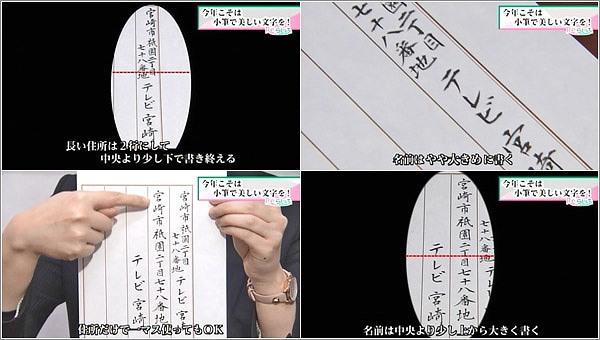 今年こそは
小筆で美しい文字を!
宮崎市祇園二丁目
七十八番地
テレビ宮崎
長い住所は2行にして
中央より少し下で書き終える
今年こそは
小筆で美しい文字を!
二丁目
七十八番地
テレビ宮崎
名前はやや大きめに書く
今年こそは
小筆で美しい文字を!
宮崎市祇園二丁目
七十八番地
テレビ宮崎
宮崎市祇園二丁目七十八番地
テレビ宮崎
住所だけで一マス使ってもOK
今年こそは
小筆で美しい文字を!
七十八番地
宮崎市祇園二丁目七十八番地
テレビ宮崎
名前は中央より少し上から大きく書く